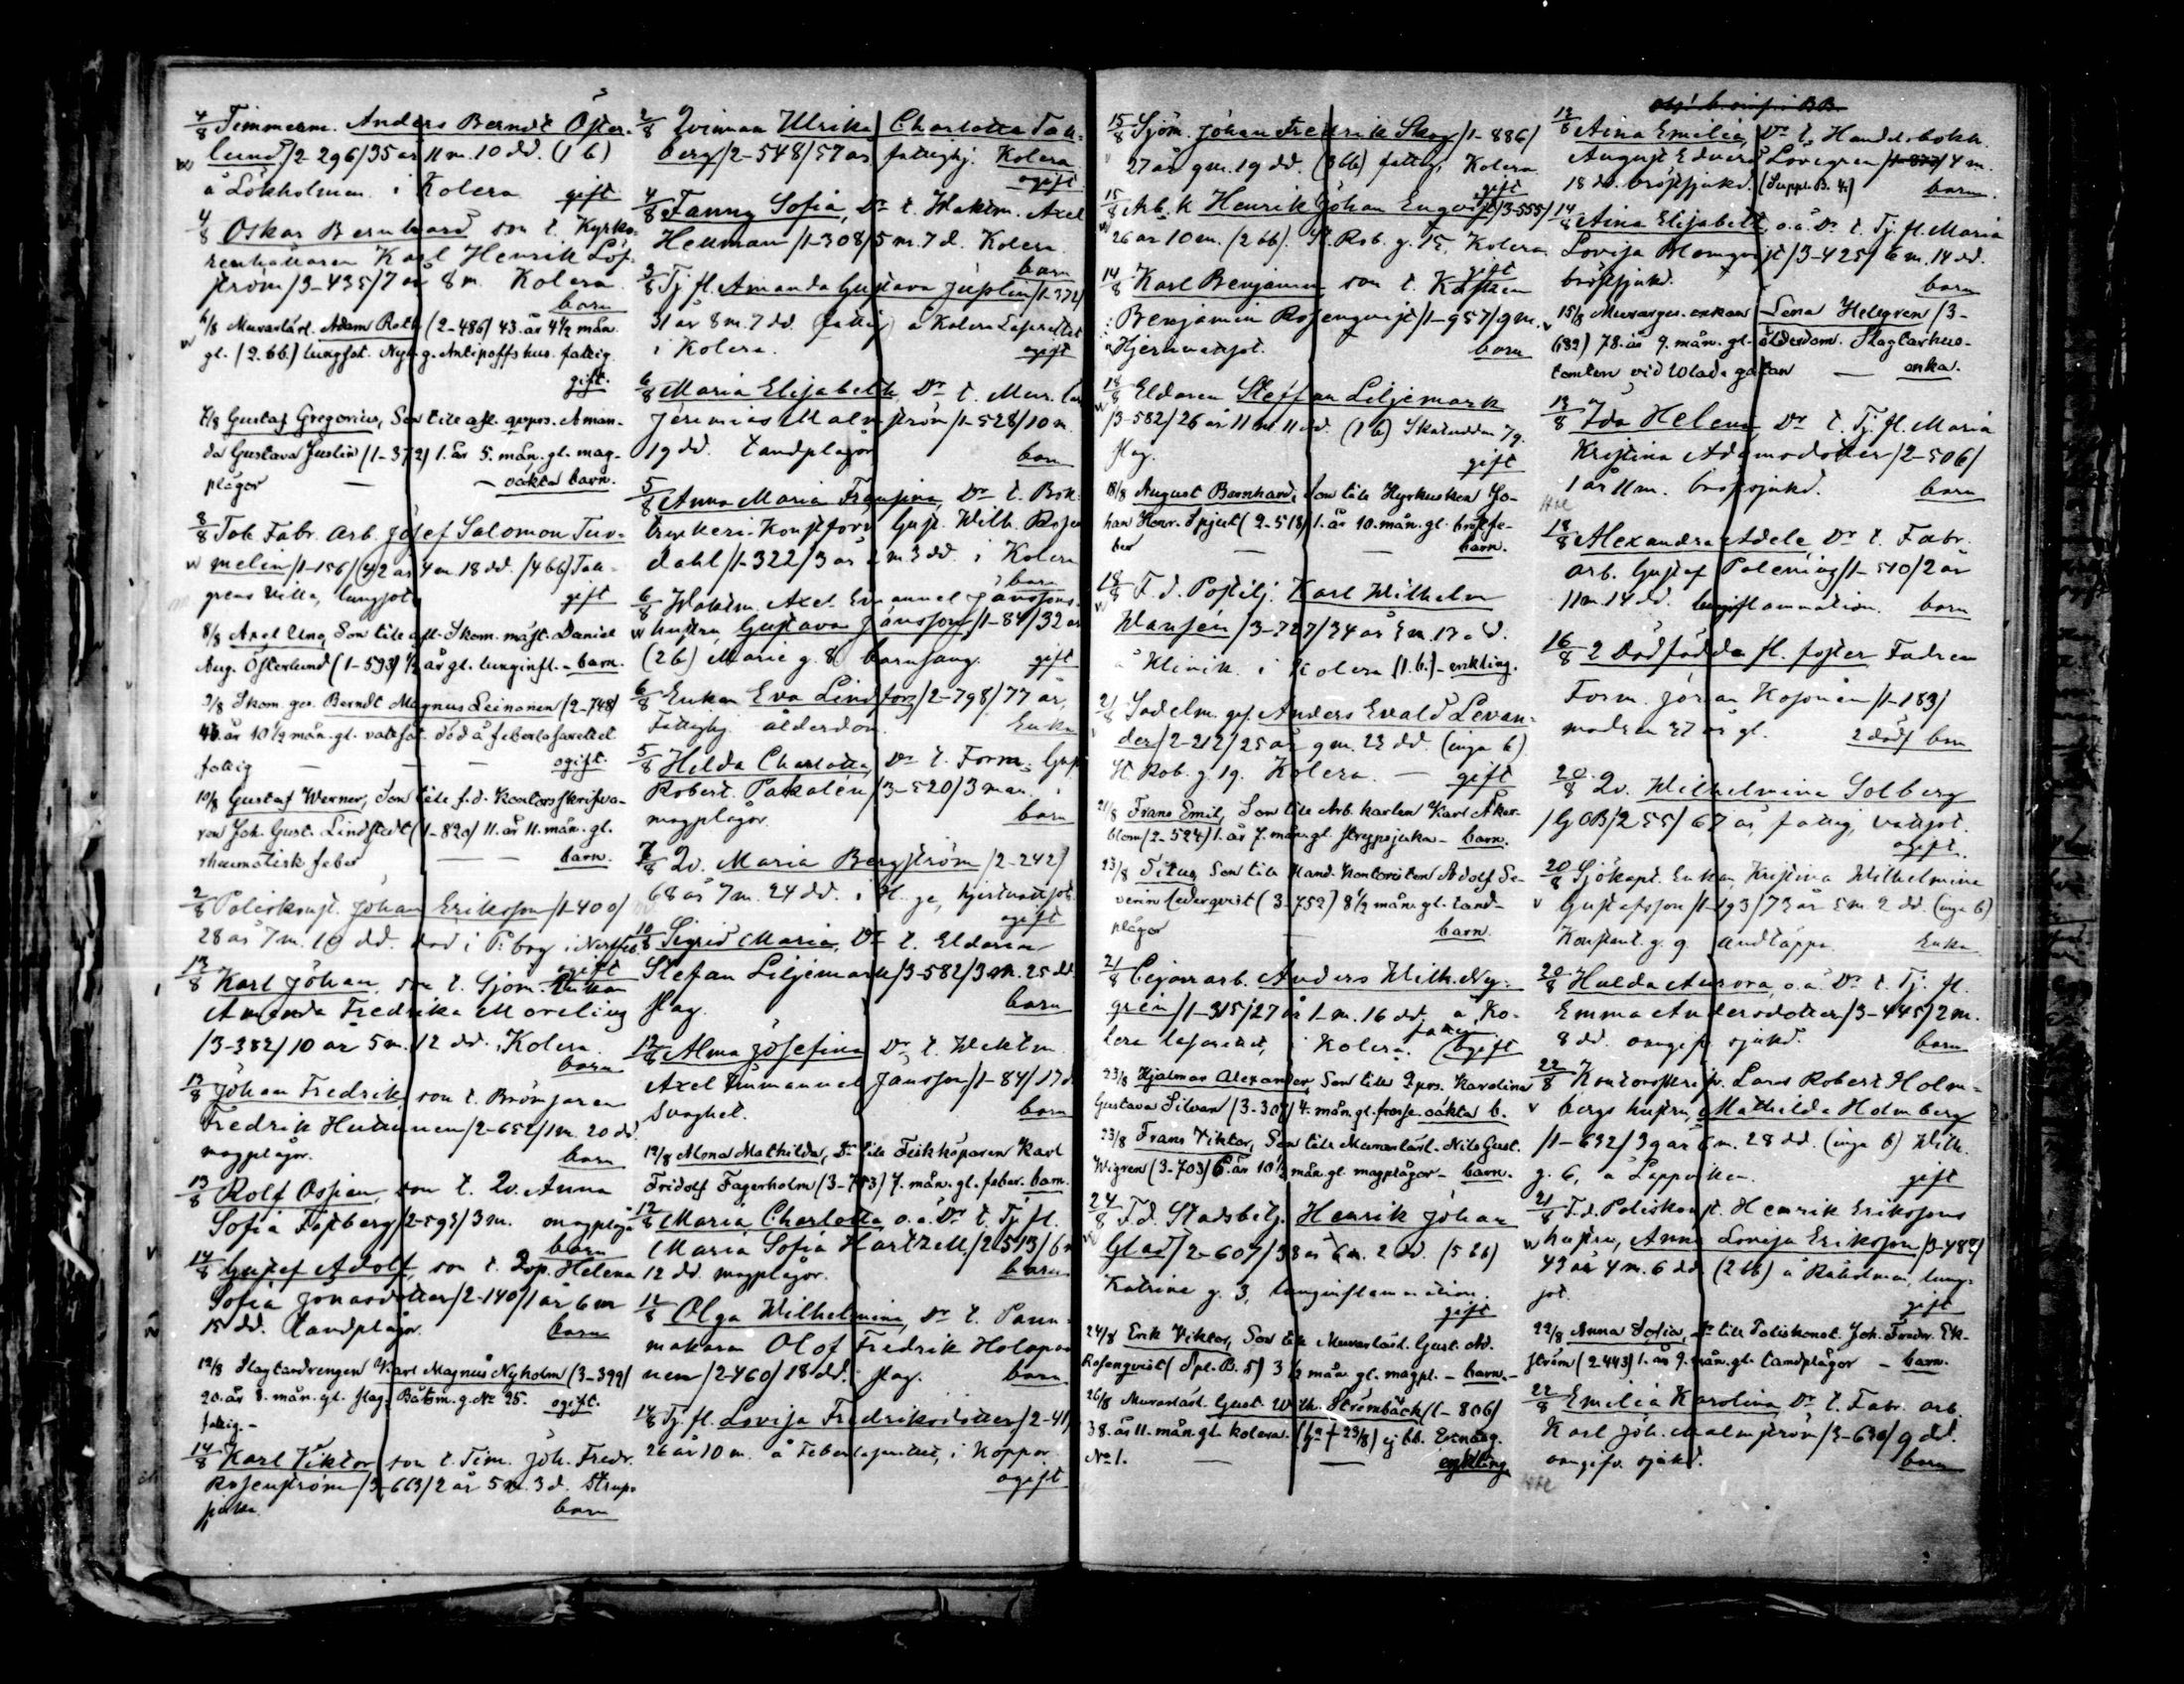 4/8 Timmerm. Anders Berndt Öster-
lund /2-296/ 35 år 11 m. 10 dd. (1 b)
å Lökholmen i Kolera gift
4/8 Oskar Bernhard son t. Kyrko-
Karl Henrik Löf-
ström /3-435/ 7 år 8 m. Kolera
barn
6/8 Murarlärl. Adam Roth (2-486) 43. år 4½ mån.
gl. (2. bb.) lungsot. Nyl. g. Antipoffs hus. fattig.
gift.
7/8 Gustaf Gregorius, Son till afl. qvprs. Aman-
da Gustava Juslin (1-372) 1. år 5. mån. gl. mag-
plågor — — oäkta barn.
8/8 Tob. Fabr. Arb. Josef Salomon Tur-
melin /1-156/ 42 år 4 m. 18 dd. (4 bb) Tall-
grens Villa, lungsot gift
8/8 Axel Uno, Son till afl. Skom. mäst. Daniel
Aug. Österlund (1-593) ½ år gl. lunginfl. - barn.
9/8 Skom. ges. Berndt Magnus Leinonen (2-748)
år 10½ mån. gl. vattsot. död å feberlasarettet
fattig — — — ogift.
10/8 Gustaf Werner, Son till f.d. Kontorsskrifva-
ren Joh. Gust. Lindstedt (1-820) 11. år 11. mån. gl.
rheumatisk feber — — barn.
2/8 Poliskonst. Johan Eriksson /1-400/
28 år 7 m. 10 dd. död i P:borg i Nerffeb.
ogift
13/8 Karl Johan, son t. Sjöm. Enkan
Amanda Fredrika Moreling
/3-382/ 10 år 5 m. 12 dd. Kolera.
barn
13/8 Johan Fredrik, son t. Brömjaren
Fredrik Huttunen /2-652/ 1 m. 20 dd.
magplågor. barn
13/8 Rolf Ossian, son t. Qv. Anna
Sofia Fastberg /2-593/ 3 m. magplåg.
barn
14/8 Gustaf Adolf, son t. Qvp. Helena
Sofia Jonasdotter /2-140/ 1 år 6 m
15 dd. Tandplågor. barn
12/8 Slagtardrengen Karl Magnus Nyholm (3-399)
20. år 8. mån. gl. slag. Båtsm. g. No 25. ogift.
fattig.-
14/8 Karl Viktor, son t. Tim. Joh. Fredr.
Rosenström /3-663/ 2 år 5 m. 3 d. Strup-
sjuka. barn
2/8 Qvinnan Ulrika Charlotta Tall-
berg /2-548/ 57 år fattighj. Kolera
ogift
4/8 Fanny Sofia, Dr t. Waktm. Axel
Hellman /1-308/ 5 m. 7 d. Kolera.
barn
3/8 Tj. fl. Amanda Gustava Juslin /1-372/
31 år 8 m. 7 dd. (fattig) å Kolera Lasarettet
i Kolera. ogift
6/8 Maria Elisabeth, Dr t. Mur. lärl.
Jeremias Malmström /1-528/ 10 m.
19 dd. tandplågor barn
5/8 Anna Maria Fransina, Dr t. Bok-
tryckeri-Konstförv. Gust. Wilh. Rosen-
dahl /1-322/ 3 år 2 m 3 dd. i Kolera
barn
6/8 Waktm. Axel Emanuel Janssons
hustru, Gustava Jansson /1-84/ 32 år
(2 b) Marie g. 8. barnsäng. gift
6/8 Enkan Eva Lindfors /2-798/ 77 år,
Fattighj. ålderdom. Enka
5/8 Hilda Charlotta, Dr t. Form. Gust.
Robert Pakalén /3-520/ 3 mån.
magplågor. barn
7/8 Qv. Maria Bergström /2-242/
68 år 7 m. 24 dd. i hjertvattsot.
ogift
10/8 Sigrid Maria, Dr t. Eldaren
Stefan Liljemark /3-582/ 3 m. 25 dd
slag. barn
12/8 Alma Josefina, Dr t. Waktm.
Axel Emmanuel Jansson /1-84/ 17 d.
Svaghet. barn
12/8 Alma Mathilda, Dr till Fiskköparen Karl
Fridolf Fagerholm (3-713) 7. mån. gl. feber. barn.
12/8 Maria Charlotta, o.ä. Dr t. Tj. fl.
Maria Sofia Hartzell /2-513/ 6 m
12 dd. magplågor. barn
11/8 Olga Wilhelmina, Dr t. Pann-
makaren Olof Fredrik Holopai-
nen /2-460/ 18 dd. slag. barn
14/8 Tj. fl. Lovisa Fredriksdotter /2-41/
26 år 10 m. å Feberlasarettet, i Koppor.
ogift
15/8 Sjöm. Johan Fredrik Skog /1-886/
27 år 9 m. 19 dd. (3 bb) fattig, Kolera
gift
15/8 Arb. k. Henrik Johan Engvist /3-555/
26 år 10 m. (2 bb). St. Rob. g. 15, Kolera
gift
14/8 Karl Benjamin, son t. Kusken
Benjamin Rosenqvist /1-957/ 9 m.
Hjernvattsot. barn
18/8 Eldaren Steffan Liljemark
/3-582/ 26 år 11 m 11 dd. (1 b) Skatudden 79.
slag. gift
18/8 August Bernhard, Son till Hyrkusken Jo-
han Henr. Spjut (2-518) 1. år 10. mån. gl. bröstfe-
ber — — barn.
18/8 F. d. Postilj. Karl Wilhelm
Hansén /3-727/ 34 år 5 m. 13 dd.
å Klinik. i Kolera (1. b.) - enkling.
21/8 Sadelm. ges. Anders Evald Levan-
der /2-212/ 25 år 9 m. 23 dd. (inga b)
St. Rob. g. 19. Kolera. — gift
21/8 Frans Emil, Son till Arb. karlen Karl Åker-
blom (2-524) 1. år 7. mån. gl. strypsjuka - barn.
23/8 Titus, Son till Hand. Kontoristen Adolf Se-
verin Cederqvist (3-752) 8½ mån. gl. tand-
plågor — barn.
21/8 Cigarrarb. Anders Wilh. Ny-
grén /1-315/ 27 år 1 m. 16 dd. å Ko-
lera lasarettet, i Kolera. ogift
23/8 Hjalmar Alexander, Son till Qprs. Karolina
Gustava Silvan (3-307) 4. mån. gl. frosse. oäkta b.
23/8 Frans Viktor, Son till Murarlärl. Nils Gust.
Wigren (3-703) 6. år 10½ mån. gl. magplågor - barn.
24/8 F.d. Stadsbetj. Henrik Johan
Glad /2-607/ 38 år 6 m. 2 dd. (5 bb)
Katrine g. 3, lunginflammation.
gift
24/8 Erik Viktor, Son till Murarlärl. Gust. Ad.
Rosenqvist (Spl. B. 5) 3½ mån. gl. magpl. - barn.-
26/8 Murarlärl. Gust. Wilh. Strömbäck (1-806)
38. år 11. mån. gl. kolera. (ga † 23/8) ej bb.
No 1. — — enkling.
12/8 Aina Emilia, Dr t. Handelsbokh.
August Edvard Lovegren 4 m.
18 dd. bröstsjukd. (Suppl. B. 4.) barn.
14/8 Aina Elisabeth, o.ä. Dr t. Tj. fl. Maria
Lovisa Blomqvist /3-425/ 6 m. 14 dd.
bröstsjukd. barn
15/8 Murarges. enkan Lena Helegren (3-
682) 78. år 9. mån. gl. ålderdom. Slagtarhus-
tomten vid Wladg gatan — enka.
13/8 Ida Helena, Dr t. Tj. fl. Maria
Kristina Adamsdotter /2-506/
1 år 11 m. bröstsjukd. barn
18/8 Alexandra Adele Dr t. Fabr.
arb. Gustaf Palenius /1-510/ 2 år
11 m. 14 dd. lunginflammation. barn
16/8 2 Dödfödda fl. foster Fadren
Form. Johan Kosonen /1-183/
modren 37 år gl. 2 dödf. bn
20/8 Qv. Wilhelmina Solberg
/G OB/2 55/ 67 år, fattig, vattsot.
ogift.
20/8 Sjökapt. Enkan, Kristina Wilhelmina
Gustafsson /1-193/ 73 år 5 m 2 dd. (inga b)
Konstant. g. 9. andtäppa. Enka
20/8 Hulda Aurora, o.ä. Dr t. Tj. fl.
Emma Andersdotter /3-445/ 2 m.
8 dd. oangifv. sjukd. barn
22/8 Kontorsskrifv. Lars Robert Holm-
bergs hustru, Mathilda Holmberg
/1-632/ 39 år 6 m. 28 dd. (inga b) Wilh.
g. 6, å Lappviken. gift
21/8 F.d. Poliskonst. Henrik Erikssons
hustru, Anna Lovisa Eriksson /3-482/
43 år 4 m. 6 dd. (2 bb) å Rååholmen, lung-
sot. gift
22/8 Anna Sofia, Dr till Poliskonst. Joh. Fredr. Ek-
ström (2-443) 1. år 9. mån. gl. tandplågor - barn.
22/8 Emilia Karolina, Dr t. Fabr. arb.
Karl Joh. Malmström /3-630/ 9 dd.
oangifv. sjukd. barn